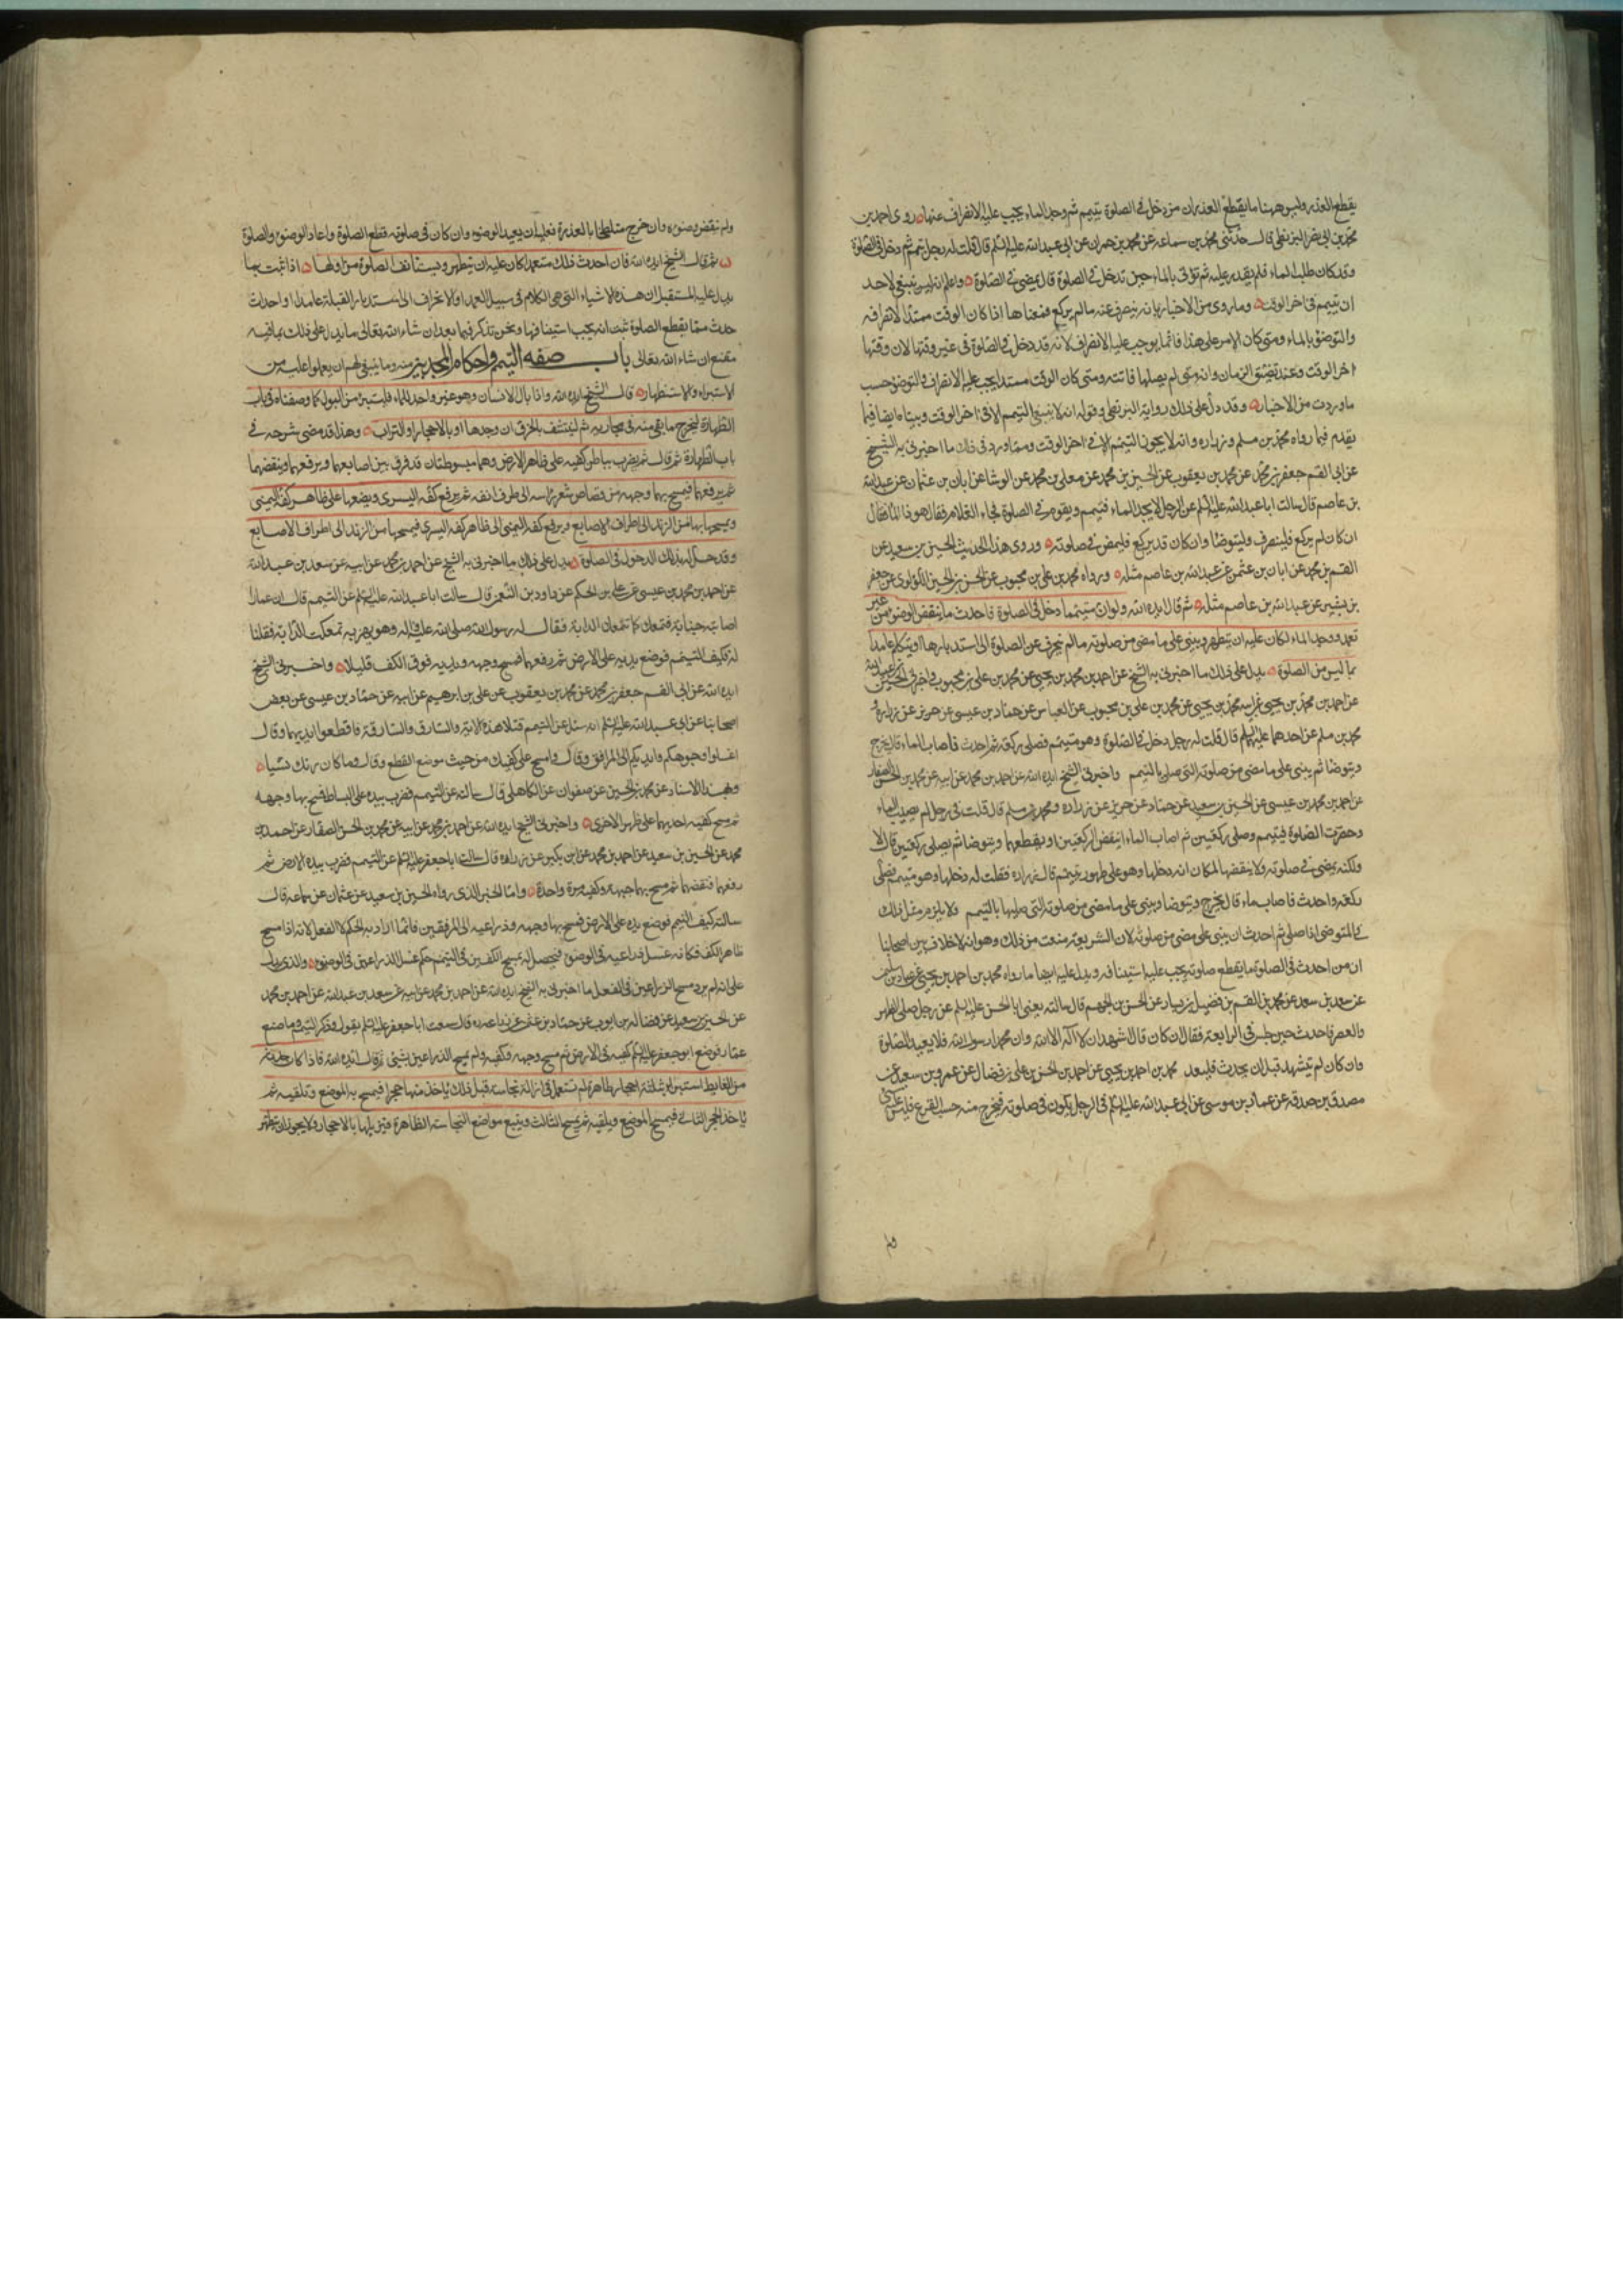 يقطع العذر وليس ههنا ما يقطع العذر ان من دخل في الصلوة بتيمم ثم وجد الماء يجب عليه الانصراف عنها روى احمد بن
محمد بن ابي نصر البزنطي قال حدثني محمد بن سماعة عن محمد بن حمران عن ابي عبد الله عليه السلم قال قلت له رجل تيمم ثم دخل في الصلوة
وقد كان طلب الماء فلم يقدر عليه ثم يؤتى بالماء حين تدخل في الصلوة قال يمضي في الصلوة واعلم انه ليس ينبغي لاحد
ان يتيمم في اخر الوقت وما روى من الاخبار بانه ينصرف عنه ما لم يركع فمعناها اذا كان الوقت ممتدا لانصرافه
والتوضؤ بالماء ومتى كان الامر على هذا فانما يوجب عليه الانصراف لانه قد دخل في الصلوة في غير وقتها لان وقتها
اخر الوقت وعند تضيق الزمان وانه متى لم يصلها فاتته ومتى كان الوقت ممتدا يجب عليه الانصراف والتوضؤ حسب
ما وردت من الاخبار وقد دل على ذلك رواية البزنطي وقوله انه لا ينبغي التيمم الا في اخر الوقت وبينا ايضا فيما
تقدم فيما رواه محمد بن مسلم وزراره وانه لا يجوز التيمم الا في اخر الوقت ومما ورد في ذلك ما اخبرني به الشيخ
عن ابي القسم جعفر بن محمد عن محمد بن يعقوب عن الحسين بن محمد عن معلى بن محمد عن الوشا عن ابان بن عثمان عن عبد الله
بن عاصم قال سالت ابا عبد الله عليه السلم عن الرجل لا يجد الماء فتيمم ويقوم في الصلوة فجاء الغلام فقال هو ذا الماء فقال
ان كان لم يركع فلينصرف وليتوضا وان كان قد ركع فليمض في صلوته وروى هذا الحديث الحسين بن سعيد عن
القسم بن محمد عن ابان بن عثمن عن عبد الله بن عاصم مثله ورواه محمد بن علي بن محبوب عن الحسن بن الحسين اللؤلؤي عن جعفر
بن بشير عن عبد الله بن عاصم مثله ثم قال ايده الله ولو ان متيمما دخل في الصلوة فاحدث ما ينقض الوضوء من غير
تعمد ووجد الماء لكان عليه ان يتطهر ويبني على ما مضى من صلوته ما لم ينحرف عن الصلوة الى استدبارها او يتكلم عامدا
بما ليس من الصلوة يدل على ذلك ما اخبرني به الشيخ عن احمد بن محمد بن يحيى عن محمد بن علي بن محبوب واخبرني الحسين بن عبيد الله
عن احمد بن محمد بن يحيى عن ابيه محمد بن يحيى عن محمد بن علي بن محبوب عن العباس عن حماد بن عيسى عن حريز عن زرارة و
محمد بن مسلم عن احدهما عليهما السلم قال قلت له رجل دخل في الصلوة وهو متيمم فصلى ركعة ثم احدث فاصاب الماء قال يخرج
ويتوضا ثم يبني على ما مضى من صلوته التي صلى بالتيمم واخبرني الشيخ ايده الله عن احمد بن محمد عن ابيه عن محمد بن الحسن الصفار
عن احمد بن محمد بن عيسى عن الحسين بن سعيد عن حماد عن حريز عن زراره ومحمد بن مسلم قال قلت في رجل لم يصب الماء
وحضرت الصلوة فتيمم وصلى ركعتين ثم اصاب الماء اينقض الركعتين او يقطعهما ويتوضا ثم يصلي ركعتين قال لا
ولكنه يمضي في صلوته ولا ينقضها لمكان انه دخلها وهو على طهور بتيمم قال زراره فقلت له دخلها وهو متيمم فصلى
ركعة واحدث فاصاب ماء قال يخرج ويتوضا ويبني على ما مضى من صلوته التي صليها بالتيمم ولا يلزم مثل ذلك
في المتوضي اذا صلى ثم احدث ان يبني على مضى من صلوته لان الشريعة منعت من ذلك وهو انه لا خلاف بين اصحابنا
ان من احدث في الصلوة ما يقطع صلوته يجب عليه استينافه ويدل عليه ايضا ما رواه محمد بن احمد بن يحيى عن عباد بن سليمن
عن سعد بن سعد عن محمد بن القسم بن فضيل بن يسار عن الحسن بن الجهم قال سالته يعني ابا الحسن عليه السلم عن رجل صلى الظهر
والعصر فاحدث حين جلس في الرابعة فقال ان كان قال اشهد ان لا اله الا الله وان محمدا رسول الله فلا يعيد الصلوة
وان كان لم يتشهد قبل ان يحدث فليعد محمد بن احمد بن يحيى عن احمد بن الحسن بن علي بن فضال عن عمرو بن سعيد عن
مصدق بن صدقه عن عمار بن موسى عن ابي عبد الله عليه السلم في الرجل يكون في صلوته فيخرج منه حب القرع فليس عليه شي
ولم ينقض وضوءه وان خرج متلطخا بالعذرة فعليه ان يعيد الوضوء وان كان في صلوته قطع الصلوة واعاد الوضوء والصلوة
ثم قال الشيخ ايده الله فان احدث ذلك متعمدا كان عليه ان يتطهر ويستانف الصلوة من اولها اذا ثبت بما
يدل عليه المستقبل ان هذه الاشياء التي هي الكلام في سبيل العمد او الانحراف الى استدبار القبلة عامدا او احداث
حدث مما يقطع الصلوة ثبت انه يجب استينافها ونحن نذكر فيما بعد ان شاء الله تعالى ما يدل على ذلك بما فيه
مقنع ان شاء الله تعالى باب صفه التيمم واحكام المحدثين منه وما ينبغي لهم ان يعملوا عليه من
الاستبراء والاستظهار قال الشيخ ايده الله واذا بال الانسان وهو غير واجد للماء فليستبرئ من البول كما وصفناه في باب
الطهارة ليخرج ما بقي منه في مجاريه ثم ليتنشف بالخرق ان وجدها او بالاحجار او التراب وهذا قد مضى شرحه في
باب الطهارة ثم قال ثم يضرب بباطن كفيه على ظاهر الارض وهما مبسوطتان قد فرق بين اصابعهما ويرفعهما وينفضهما
ثم يرفعهما فيمسح بهما وجهه من قصاص شعر راسه الى طرف انفه ثم يرفع كفه اليسرى ويضعها على ظاهر كفه اليمنى
ويمسحها بها من الزند الى اطراف الاصابع ويرفع كفه اليمنى الى ظاهر كفه اليسرى فيمسحها من الزند الى اطراف الاصابع
وقد حل له بذلك الدخول في الصلوة يدل على ذلك ما اخبرني به الشيخ عن احمد بن محمد عن ابيه عن سعد بن عبد الله
عن احمد بن محمد بن عيسى عن علي بن الحكم عن داود بن النعمن قال سالت ابا عبد الله عليه السلم عن التيمم قال ان عمارا
اصابته جنابة فتمعك كما تتمعك الدابة فقال له رسول الله صلى الله عليه واله وهو يهزء به تمعكت الدابة فقلنا
له فكيف التيمم فوضع يديه على الارض ثم رفعهما فمسح وجهه ويديه فوق الكف قليلا واخبرني الشيخ
ايده الله عن ابي القسم جعفر بن محمد عن محمد بن يعقوب عن علي بن ابرهيم عن ابيه عن حماد بن عيسى عن بعض
اصحابنا عن ابي عبد الله عليه السلم انه سئل عن التيمم فتلا هذه الاية والسارق والسارقة فاقطعوا ايديهما وقال
اغسلوا وجوهكم وايديكم الى المرافق وقال وامسح على كفيك من حيث موضع القطع وقال وما كان ربك نسيا
وبهذا الاسناد عن محمد بن الحسين عن صفوان عن الكاهلي قال سالته عن التيمم فضرب بيده على البساط فمسح بها وجهه
ثم مسح كفيه احديهما على ظهر الاخرى واخبرني الشيخ ايده الله عن احمد بن محمد عن ابيه عن محمد بن الحسن الصفار عن احمد بن
محمد عن الحسين بن سعيد عن احمد بن محمد عن ابن بكير عن زراره قال سالت ابا جعفر عليه السلم عن التيمم فضرب بيده الارض ثم
رفعها فنفضها ثم مسح بها جبهته وكفيه مرة واحدة واما الخبر الذي رواه الحسين بن سعيد عن عثمان عن سماعه قال
سالته كيف التيمم فوضع يده على الارض فمسح بها وجهه وذراعيه الى المرفقين فانما اراد به الحكم لا الفعل لانه اذا مسح
ظاهر الكف فكانه غسل ذراعيه في الوضوء فيحصل له بمسح الكفين في التيمم حكم غسل الذراعين في الوضوء والذي يدل
على انه لم يرد مسح الذراعين في الفعل ما اخبرني به الشيخ ايده الله عن احمد بن محمد عن ابيه عن سعد بن عبد الله عن احمد بن محمد
عن الحسين بن سعيد عن فضالة بن ايوب عن حماد بن عثمن عن زراره قال سمعت ابا جعفر عليه السلم يقول وذكر التيمم وما صنع
عمار فوضع ابو جعفر عليه السلم كفيه في الارض ثم مسح وجهه وكفيه ولم يمسح الذراعين بشيئ ثم قال ايده الله فاذا كان حدثه
من الغايط استبرا بثلثة احجار طاهرة لم تستعمل في ازالة نجاسة قبل ذلك ياخذ منها حجرا فيمسح به الموضع ويلقيه ثم
ياخذ الحجر الثاني فيمسح الموضع ويلقيه ثم يمسح بالثالث ويتبع مواضع النجاسة الظاهرة فيزيلها بالاحجار ولا يجوز ان يتطهر